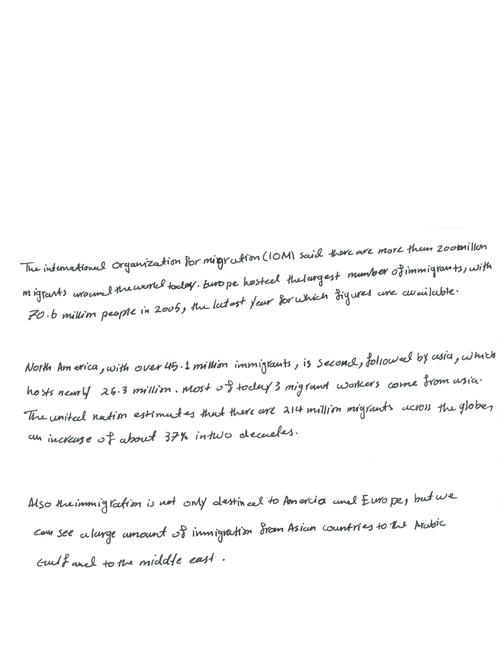 The international organization for migration (IOM) said there are more them 200million
migrants around the world today. Europe hosted the largest number of immigrants, with
70.6 million people in 2005, the latest year for which figures are available.
North America, with over 45.1 million immigrants, is second, followed by asia, which
hosts nearly 25.3 million. Most of today's migrant workers come from asia.
The united nation estimates that there are 214 million migrants across the globe,
an increase of about 37% in two decades.
Also the immigration is not only destined to Amercia and Europe, but we
can see a large amount of immigration from Asian countries to the Arabic
Gulf and to the middle east.